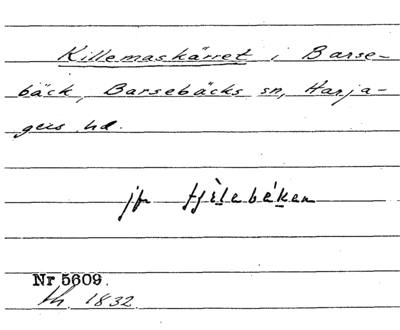 Killemaskärret i Barse-
bäck, Barsebäcks sn, Harja-
gers hd.
jfr tjìlebéken
Nr 5609.
th. 1832.